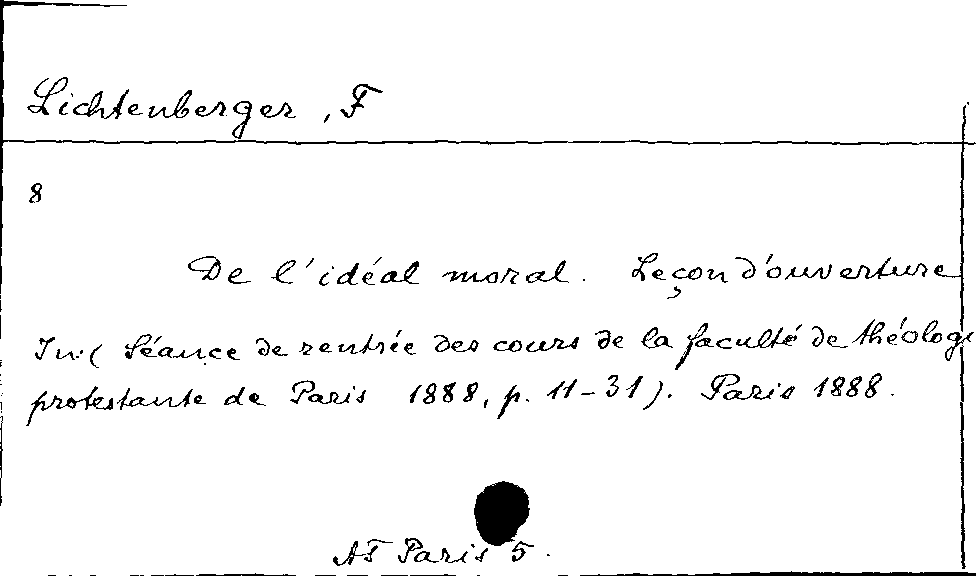 Lichtenberger, F
8
De l'idéal moral. Leçon d'ouverture
In: (Séance de rentrée des cours de la faculté de théologi
protestante de Paris 1888, p. 11-31). Paris 1888.
AT Paris 5.